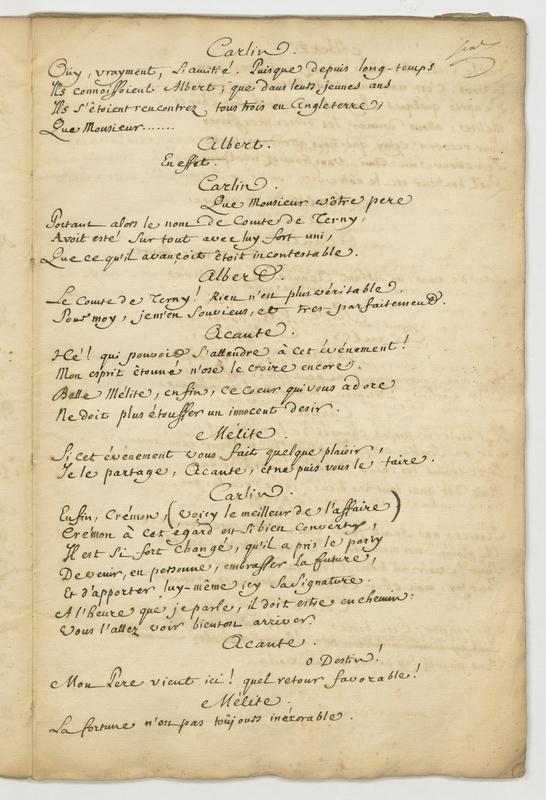 Carlin.
Oüy, vrayment, Si amitié. Puisque depuis long-temps
Ils connoissoient Albert; que dans leurs jeunes ans
Ils s'étoient rencontrez tous trois en Angleterre;
Que Monsieur.......
Albert.
En effet.
Carlin.
Que Monsieur vôtre pere
Portant alors le nom de Comte de Terny,
Avoit esté sur tout avec luy fort uni,
Que ce qu'il avançoit étoit incontestable.
Albert.
Le Comte de Terny! Rien n'est plus véritable.
Pour moy, je m'en souviens, et tres-parfaitement.
Acante.
Hé! qui pouvoit s'attendre à cet événement!
Mon esprit étonné n'ose le croire encore;
Belle Mélite, enfin, ce coeur qui vous adore
Ne doit plus étouffer un innocent desir.
Mélite.
Si cet événement vous fait quelque plaisir,
Je le partage, Acante, et ne puis vous le taire.
Carlin.
Enfin, Crémon, (voicy le meilleur de l'affaire)
Crémon à cet égard est si bien converty,
Il est si fort changé, qu'il a pris le party
De venir, en personne, embrasser la future,
Et d'apporter luy-même icy sa signature.
A l'heure que je parle, il doit estre en chemin:
Vous l'allez voir bientost arriver.
Acante.
O Destin!
Mon Pere vient ici! quel retour favorable!
Mélite.
La fortune n'est pas toûjours inéxorable.